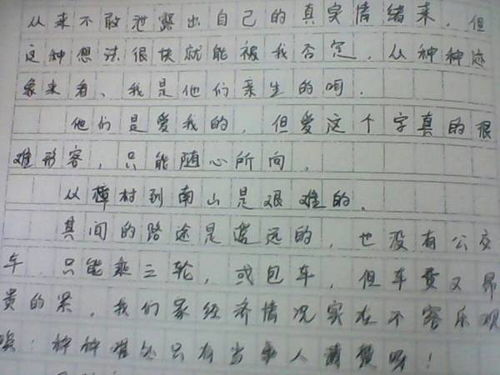 从来不敢泄露出自己的真实情绪来，但
这种想法很快就能被我否定，从种种迹
象来看、我是他们亲生的呵．
他们是爱我的，但爱这个字真的很
难形容，只能随心所向．
从樟村到南山是艰难的．
其间的路途是遥远的，也没有公交
车．只能乘三轮，或包车，但车费又昂
贵的累，我们家经济情况实在不容乐观
唉！种种难处只有当事人清楚呀！